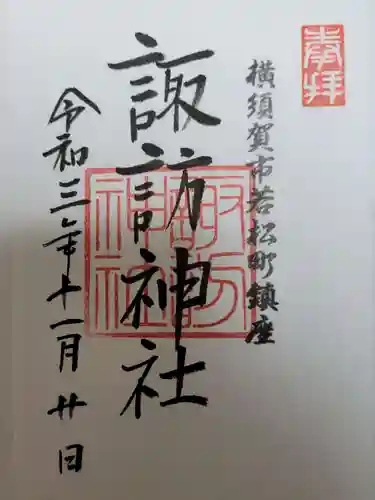 奉拝
横須賀市若松町鎮座
諏訪神社
諏訪神社
令和三年十一月廿日